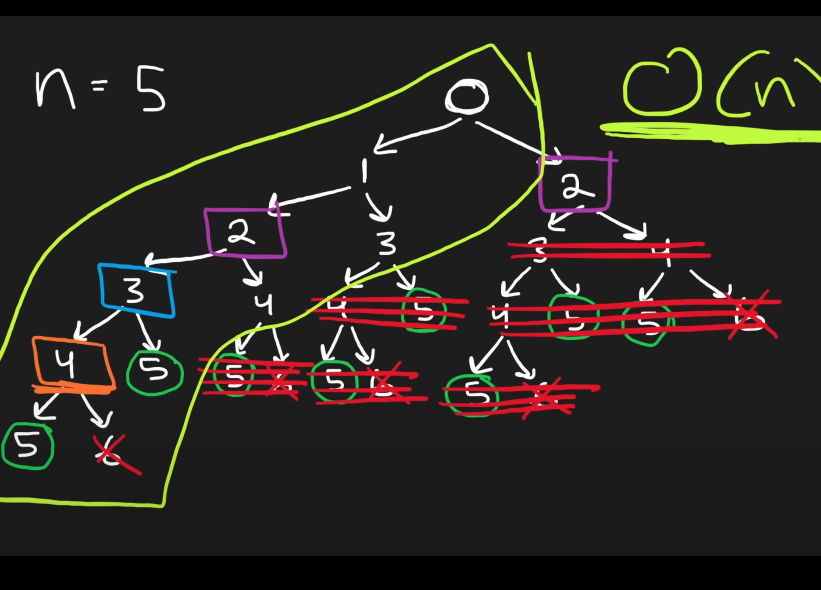 n = 5
O(n)
0
1
2
2
3
3
4
3
4
4
5
4
5
5
6
4
5
5
6
5
6
5
6
5
6